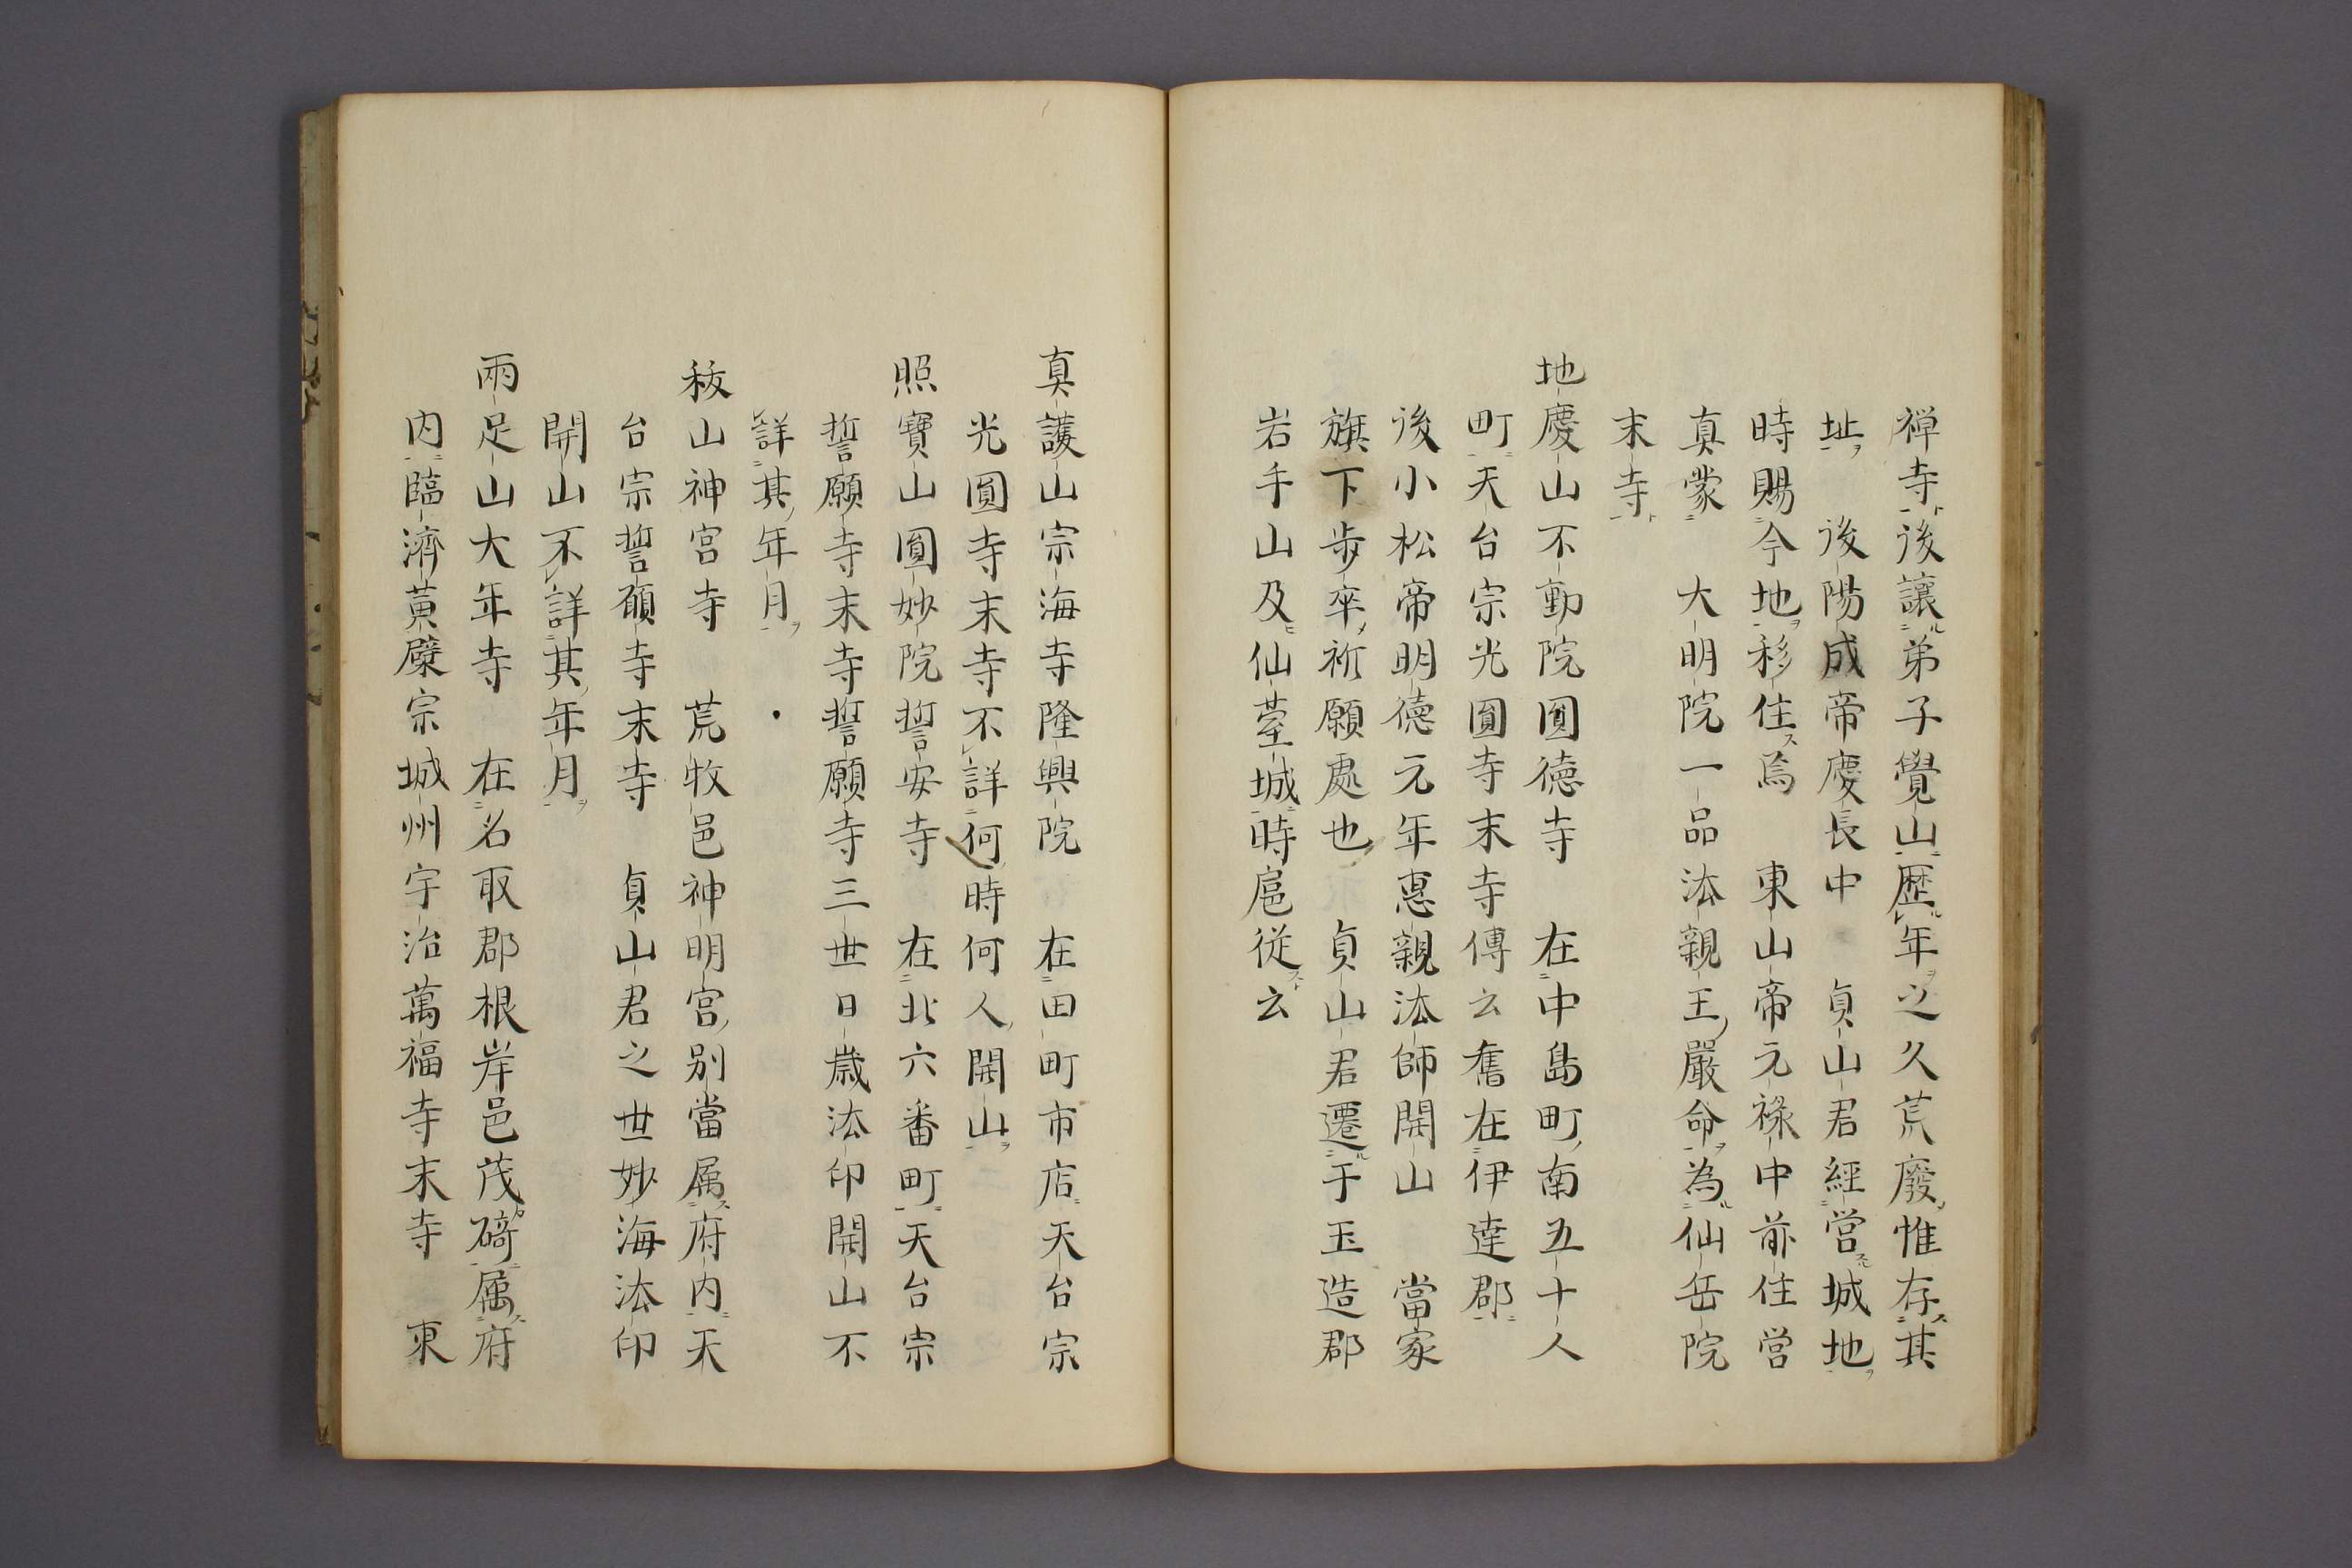 禅寺後讓弟子覺山歷年之久荒廢惟存其
址　後陽成帝慶長中　貞山君經営城地
時賜今地移住焉　東山帝元祿中前住営
真蒙　大明院一品法親王嚴命為仙岳院
末寺
地慶山不動院圓徳寺　在中島町南五十人
町天台宗光圓寺末寺傳云舊在伊達郡
後小松帝明德元年惠親法師開山　當家
旗下歩卒祈願處也　貞山君遷于玉造郡
岩手山及仙臺城時扈従云
真護山宗海寺隆興院　在田町市店天台宗
光圓寺末寺不詳何時何人開山
照寶山圓妙院誓安寺　在北六番町天台宗
誓願寺末寺誓願寺三世日歳法印開山不
詳其年月
秡山神宮寺　荒牧邑神明宮別當属府内天
台宗誓願寺末寺　貞山君之世妙海法印
開山不詳其年月
兩足山大年寺　在名取郡根岸邑茂碕属府
内臨濟黄檗宗城州宇治萬福寺末寺　東